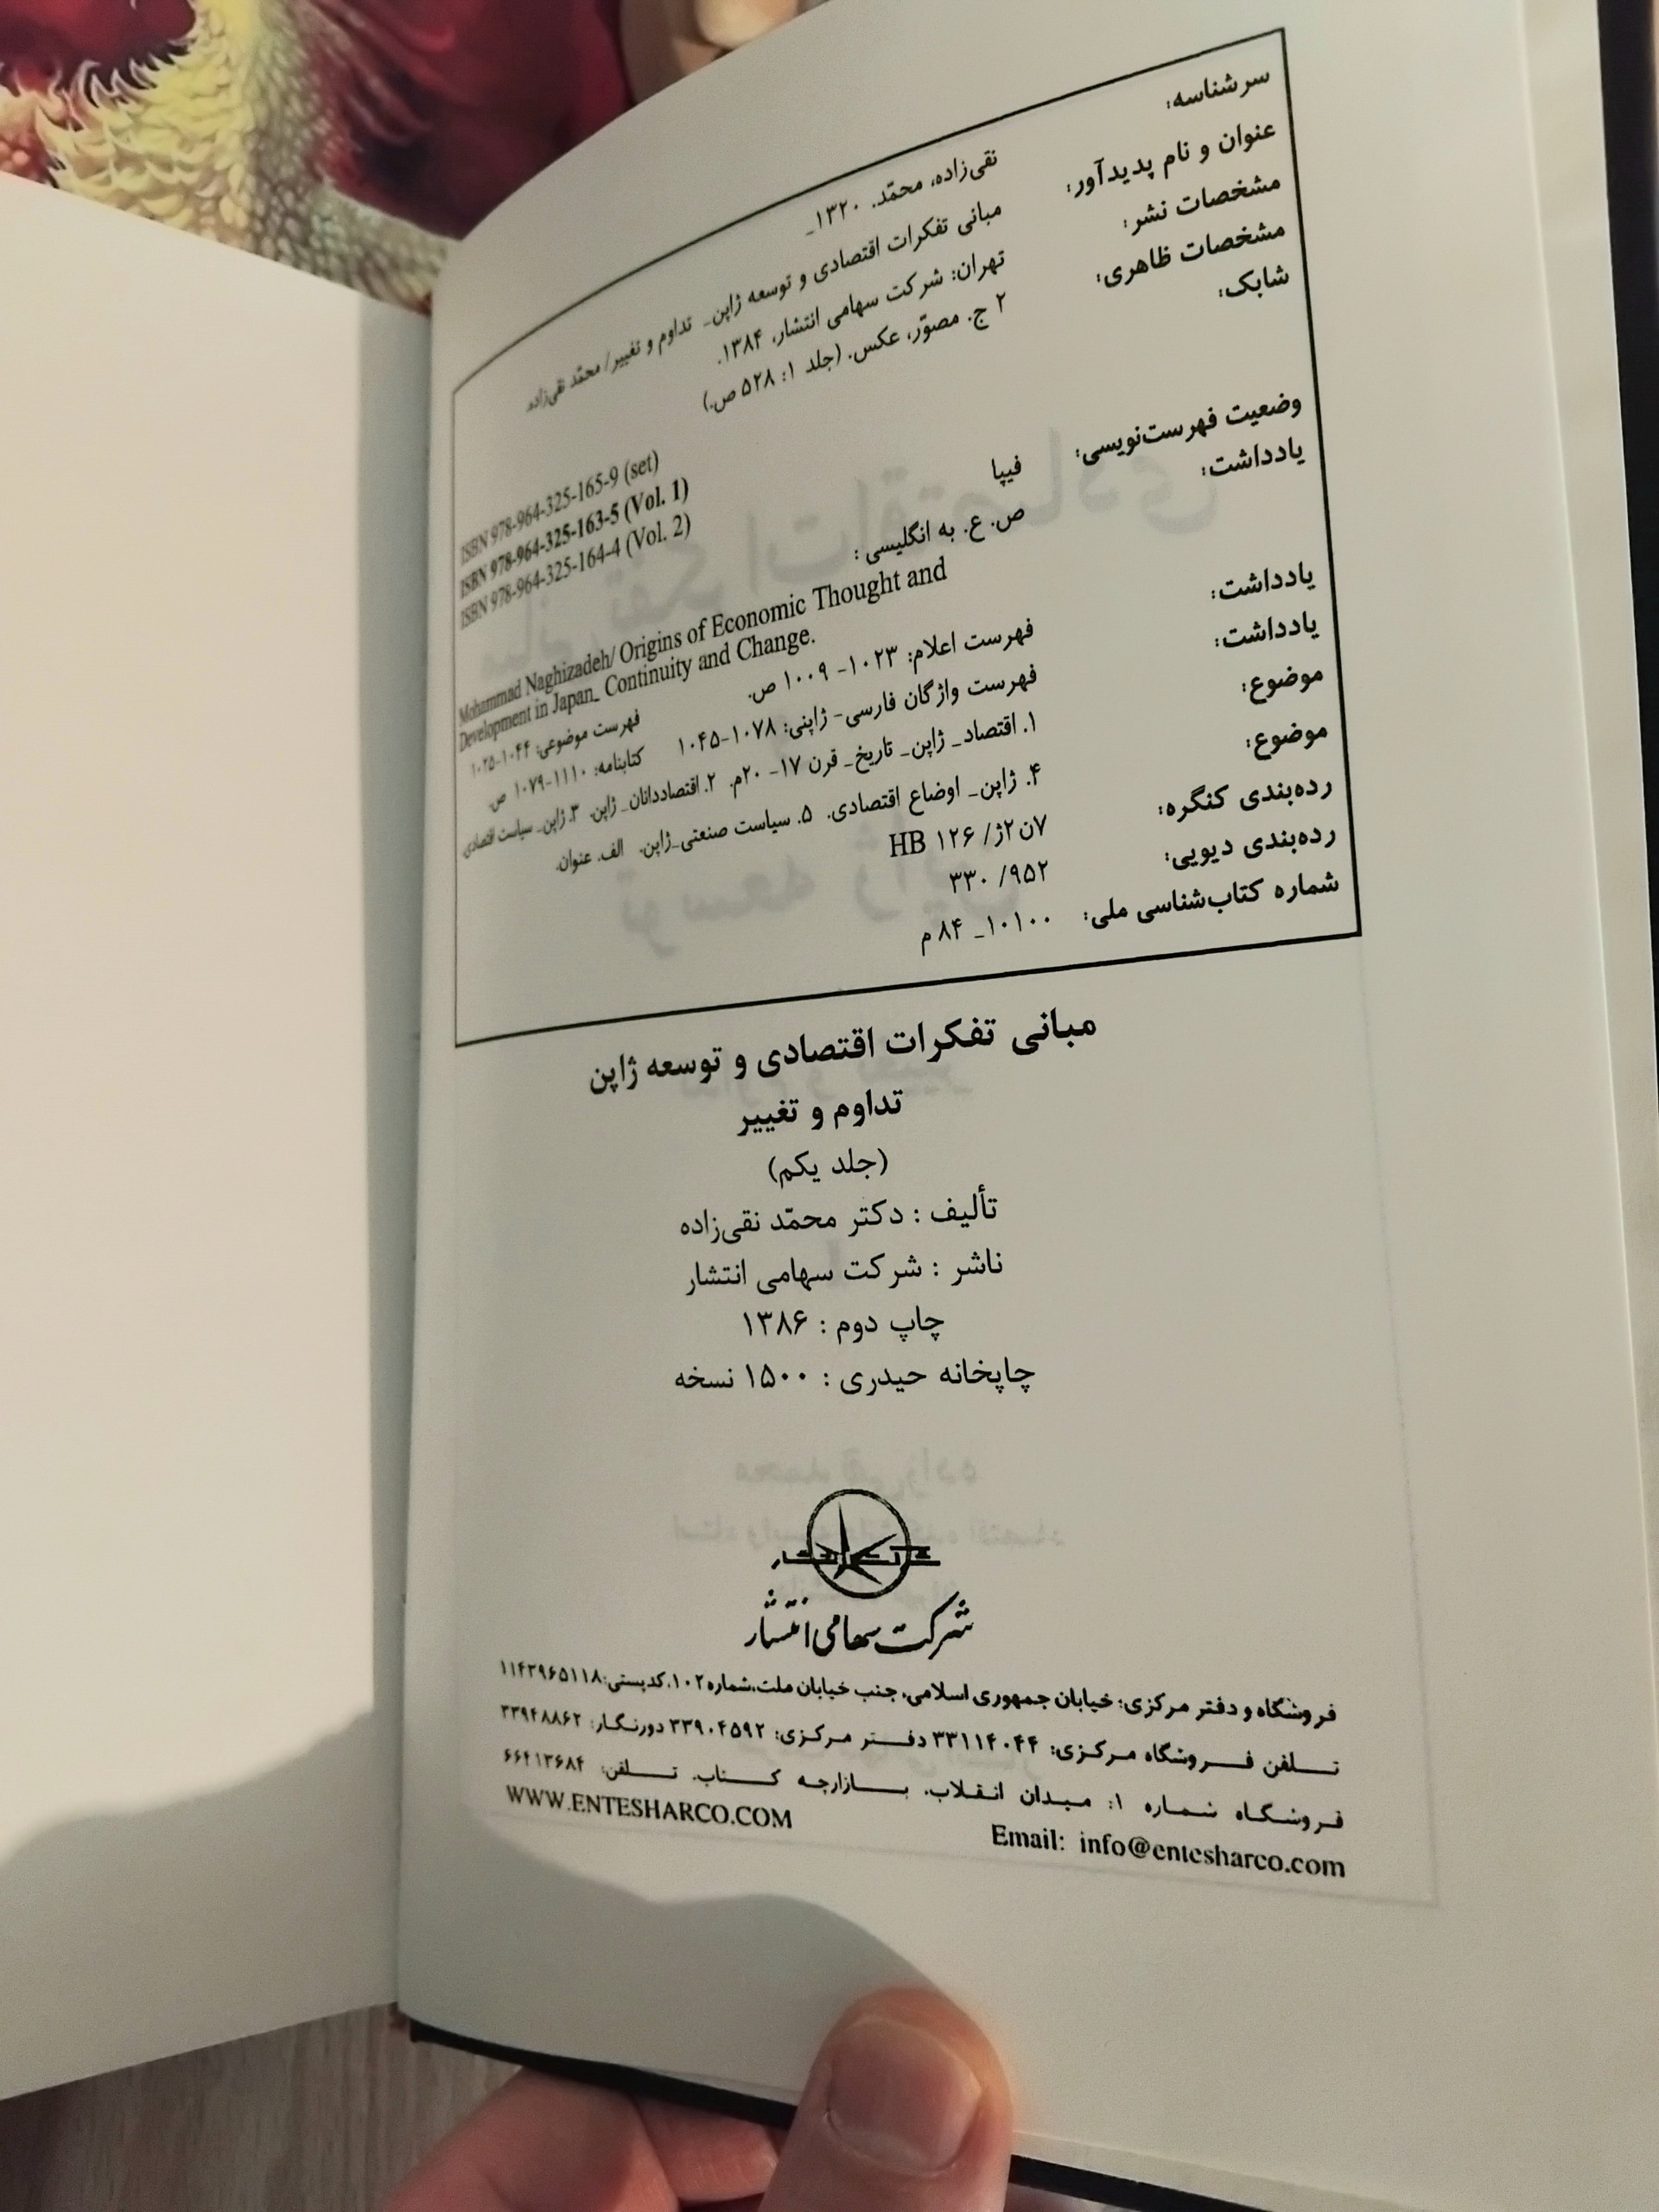 سرشناسه: نقی‌زاده، محمّد. ۱۳۲۰_
عنوان و نام پدیدآور: مبانی تفکرات اقتصادی و توسعه ژاپن_ تداوم و تغییر/ محمّد نقی‌زاده.
مشخصات نشر: تهران: شرکت سهامی انتشار، ۱۳۸۴.
مشخصات ظاهری: ۲ ج. مصوّر، عکس. (جلد ۱: ۵۲۸ ص.)
شابک:
ISBN 978-964-325-165-9 (set)
ISBN 978-964-325-163-5 (Vol. 1)
ISBN 978-964-325-164-4 (Vol. 2)
وضعیت فهرست‌نویسی: فیپا
یادداشت: ص. ع. به انگلیسی :
Mohammad Naghizadeh/ Origins of Economic Thought and
Development in Japan_ Continuity and Change.
یادداشت: فهرست اعلام: ۱۰۲۳- ۱۰۰۹ ص. فهرست موضوعی: ۱۰۴۴-۱۰۲۵
یادداشت: فهرست واژگان فارسی- ژاپنی: ۱۰۷۸-۱۰۴۵ کتابنامه: ۱۱۱۰-۱۰۷۹ ص.
موضوع: ۱. اقتصاد_ ژاپن_ تاریخ_ قرن ۱۷- ۲۰م. ۲. اقتصاددانان_ ژاپن. ۳. ژاپن_ سیاست اقتصادی.
موضوع: ۴. ژاپن_ اوضاع اقتصادی. ۵. سیاست صنعتی_ژاپن. الف. عنوان.
رده‌بندی کنگره: ۷ن۲ژ/ ۱۲۶ HB
رده‌بندی دیویی: ۹۵۲/ ۳۳۰
شماره کتاب‌شناسی ملی: ۱۰۱۰۰_ ۸۴ م
مبانی تفکرات اقتصادی و توسعه ژاپن
تداوم و تغییر
(جلد یکم)
تألیف : دکتر محمّد نقی‌زاده
ناشر : شرکت سهامی انتشار
چاپ دوم : ۱۳۸۶
چاپخانه حیدری : ۱۵۰۰ نسخه
شرکت سهامی انتشار
فروشگاه و دفتر مرکزی: خیابان جمهوری اسلامی، جنب خیابان ملت،شماره ۱۰۲،کدپستی:۱۱۴۳۹۶۵۱۱۸
تلفن فروشگاه مرکزی: ۳۳۱۱۴۰۴۴ دفتر مرکزی: ۳۳۹۰۴۵۹۲ دورنگار: ۳۳۹۴۸۸۶۲
فروشگاه شماره ۱: میدان انقلاب. بازارچه کتاب. تلفن: ۶۶۴۱۳۶۸۴
WWW.ENTESHARCO.COM Email: info@entesharco.com